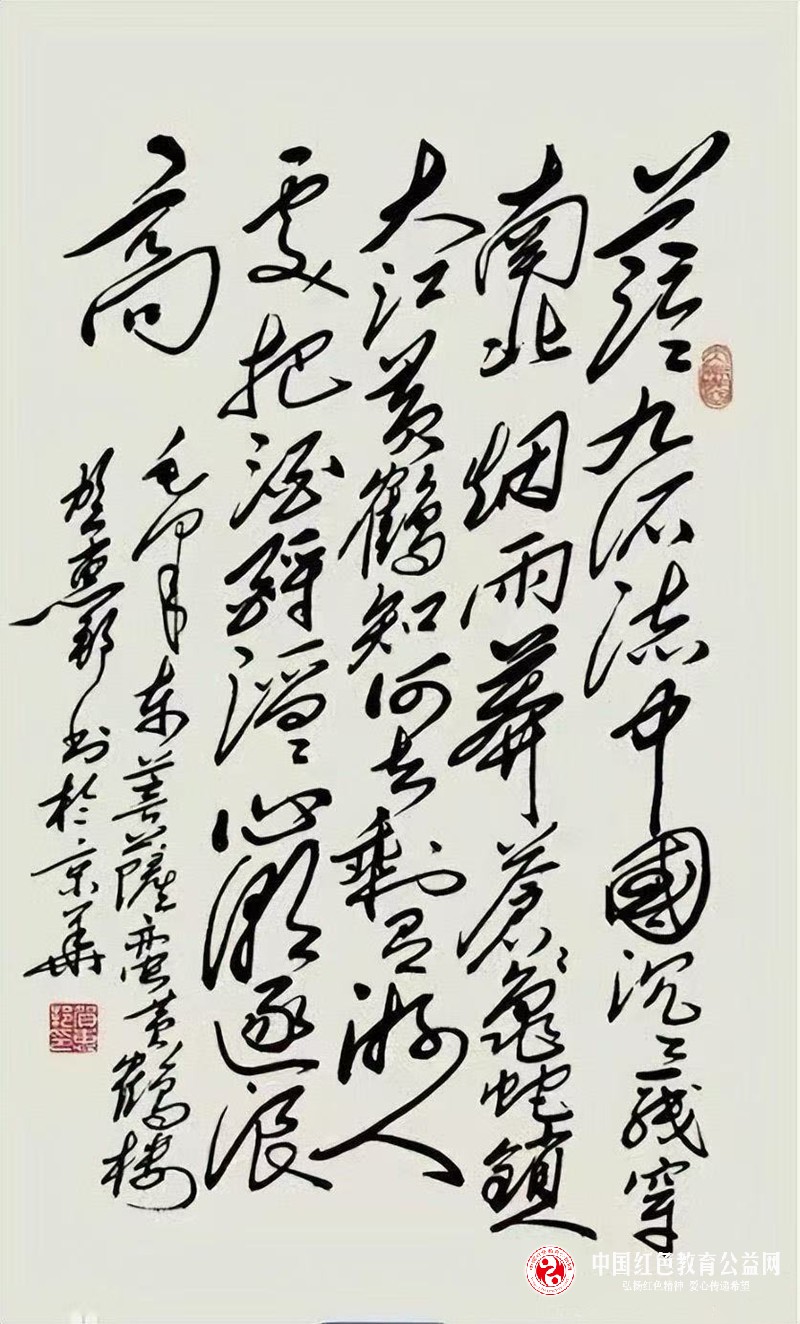 茫〻九派流中國沉〻一线穿
南北烟雨莽蒼〻龜蛇鎖
大江黄鶴知何去剩有游人
處把酒酹滔〻心潮逐浪
高
毛泽东菩薩蛮黄鶴楼
賀惠邦书於京華
中国红色教育公益网
弘扬红色精神 爱心传递希望